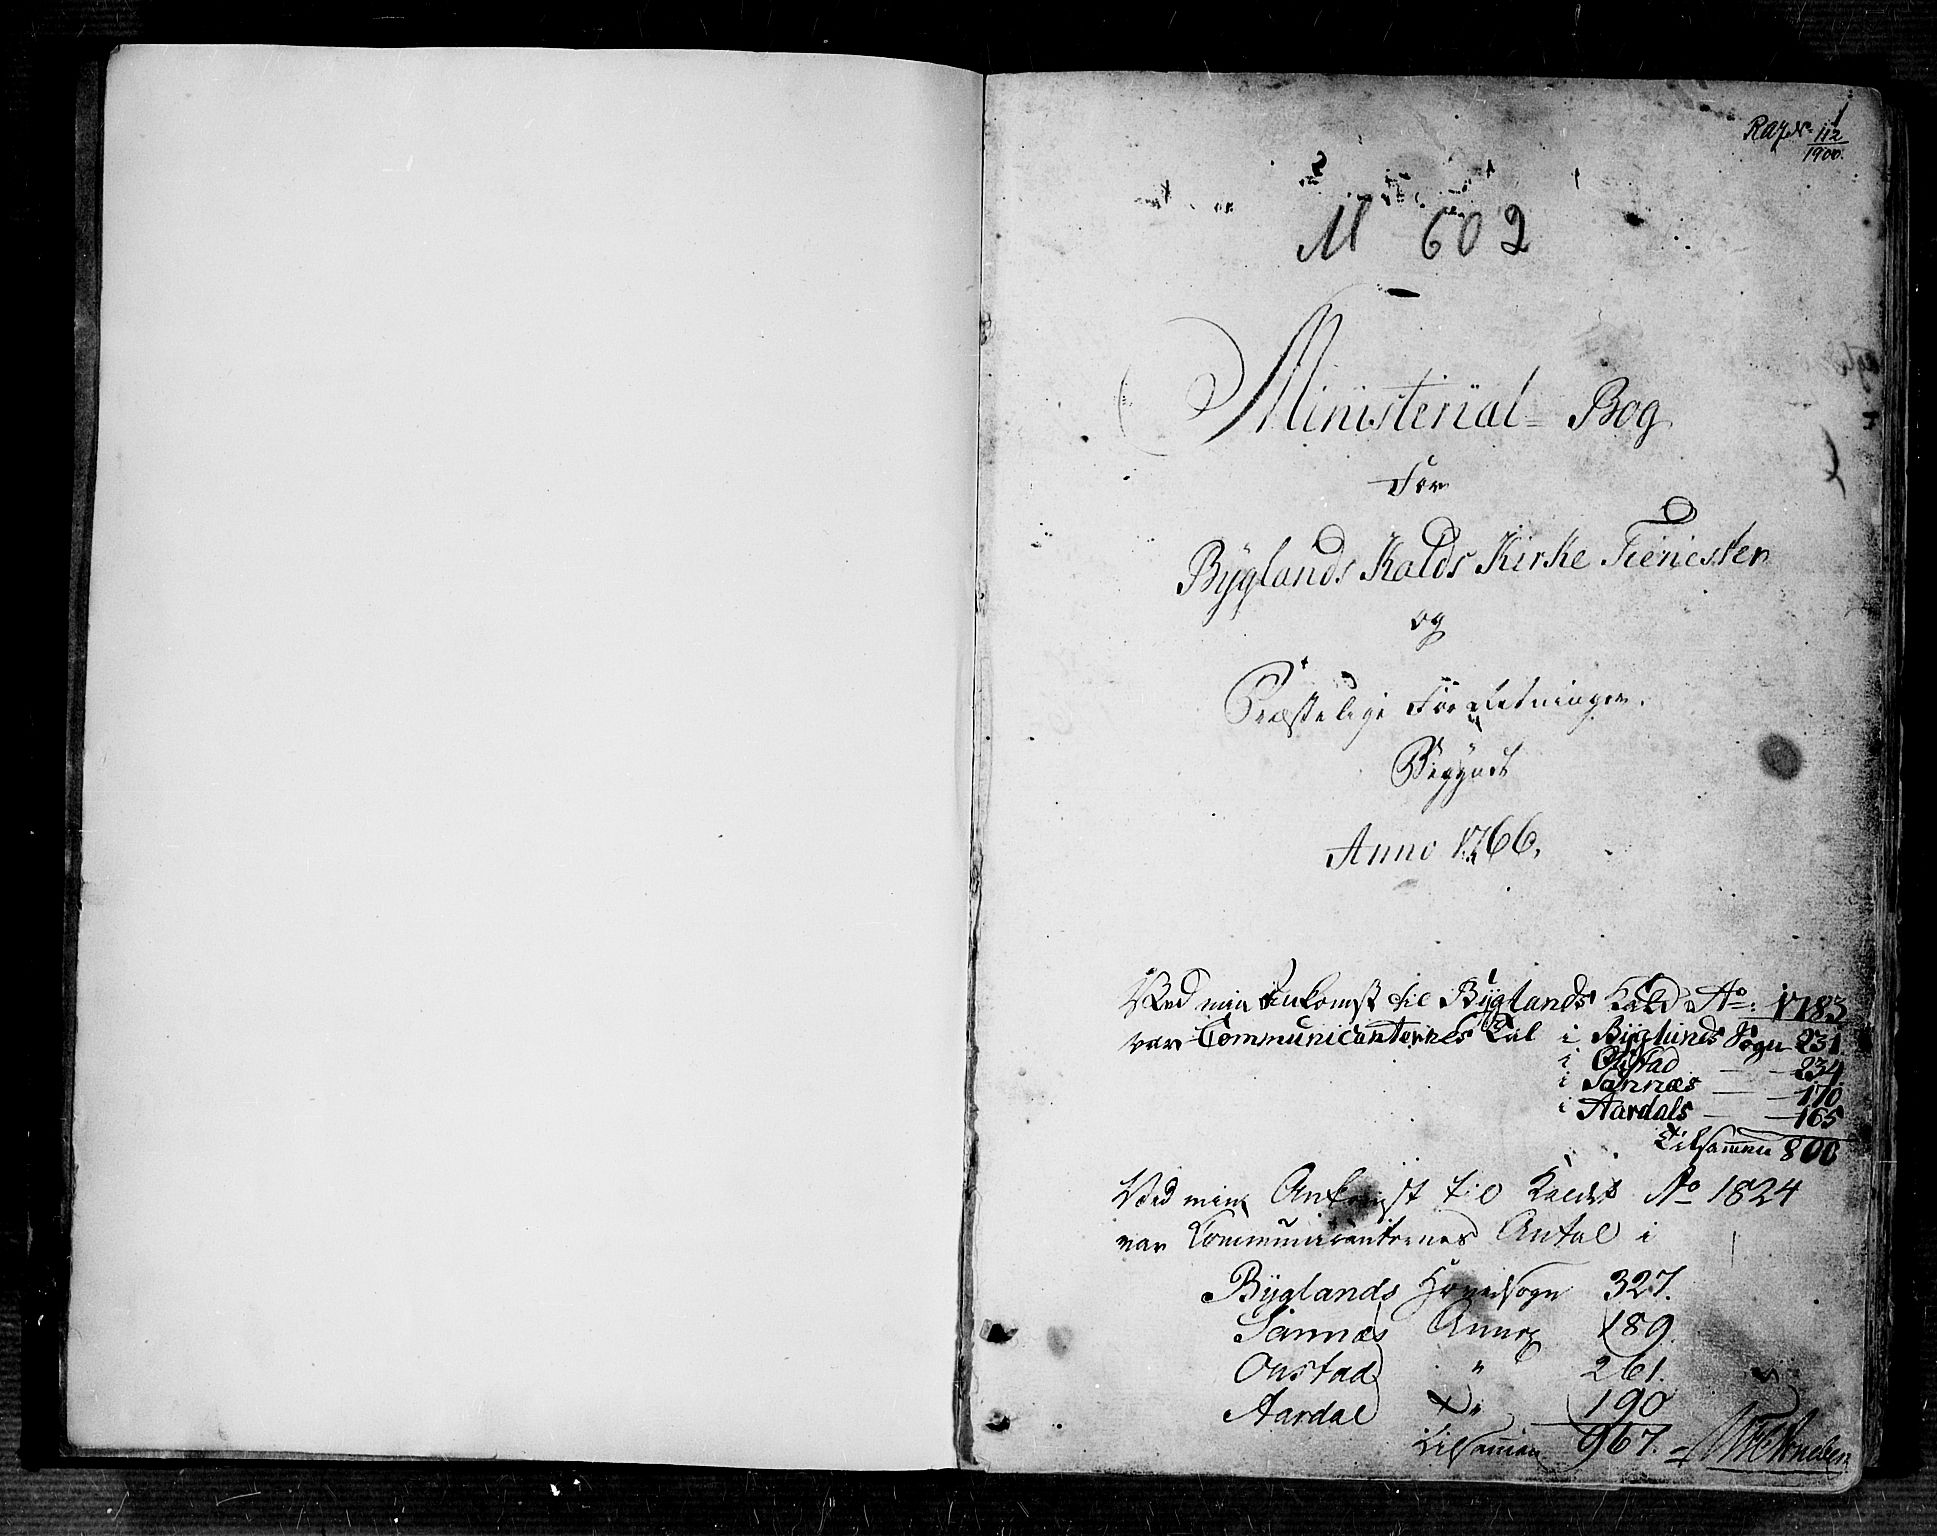 1
112
1900.
M 602
Ministerial= Bog
For
Byglands Kalds Kirke Tienesten
og
Præstelige Forretninger.
Begyndt
Anno 1766.
Ved min Ankomst til Byglands Kald Ao: 1783
var Communicanternes Tal i Byglands Sogn 231
i Ostad — 234
i Sannæs — 170
i Aardals — 165
Tilsammen 800
Ved min Ankomst til Kaldet Ao 1824
var Communicanternes Antal i
Byglands Hovedsogn 327.
Sannæs Annex 189.
Oustad " 261.
Aardal " 190
Tilsammen 967.